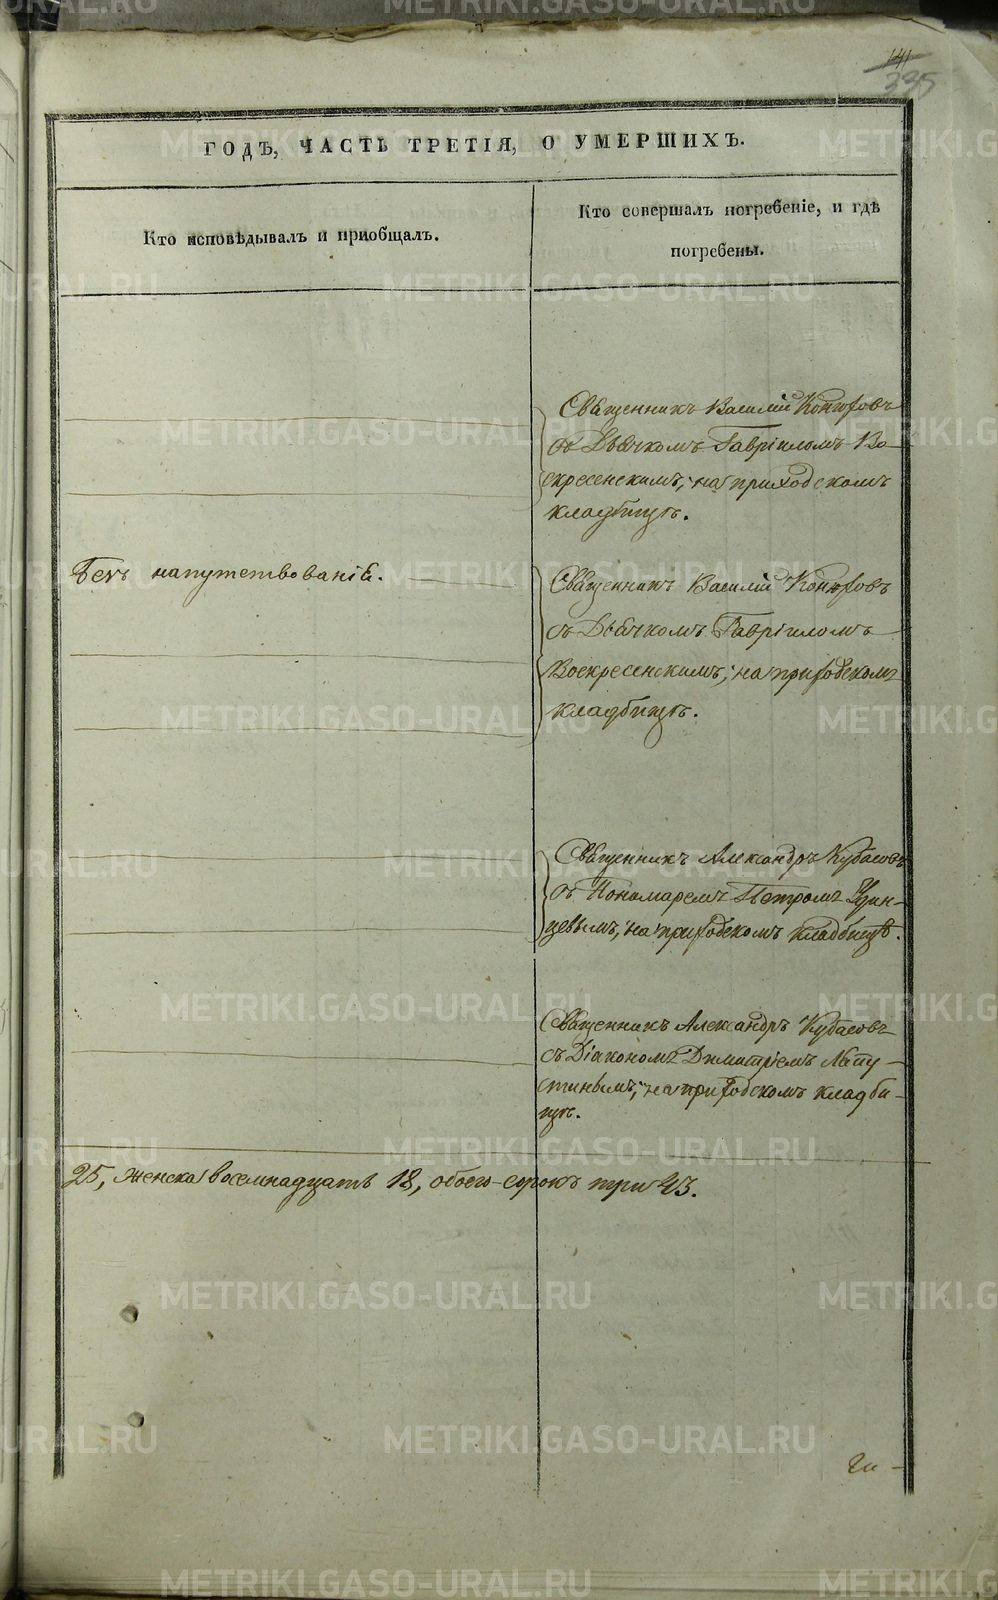 141
335
ГОДЪ, ЧАСТЬ ТРЕТІЯ, О УМЕРШИХЪ.
Кто исповѣдывалъ и пріобщалъ.
Кто совершалъ погребеніе, и гдѣ
погребены.
Священникъ Василій Конюховъ
съ Дьячкомъ Гавріиломъ Во-
скресенскимъ, на приходскомъ
кладбищѣ.
Безъ напутствованія.
Священникъ Василій Конюховъ
съ Дьячкомъ Гавріиломъ
Воскресенскимъ, на приходскомъ
кладбищѣ.
Священникъ Александръ Кубасовъ
съ Пономаремъ Петромъ
на приходскомъ кладбищѣ.
Священникъ Александръ Кубасовъ
съ Діакономъ Димитріемъ Лапу-
тинымъ, на приходскомъ кладби-
щѣ.
25, женска восемнадцать 18, обоего сорокъ три 43.
METRIKI.GASO-URAL.RU